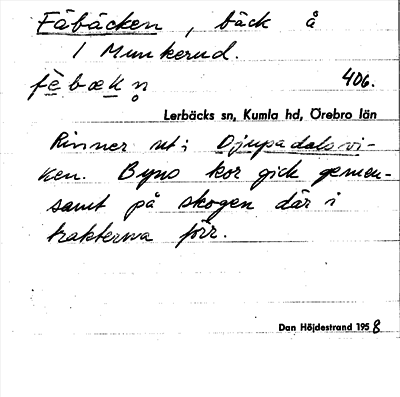 Fäbäcken, bäck å
1 Munkerud.
fèbækn̥ 406.
Lerbäcks sn, Kumla hd, Örebro län
Rinner ut i Djupadalsvi-
ken. Byns kor gick gemen-
samt på skogen där i
trakterna förr.
Dan Höjdestrand 1958